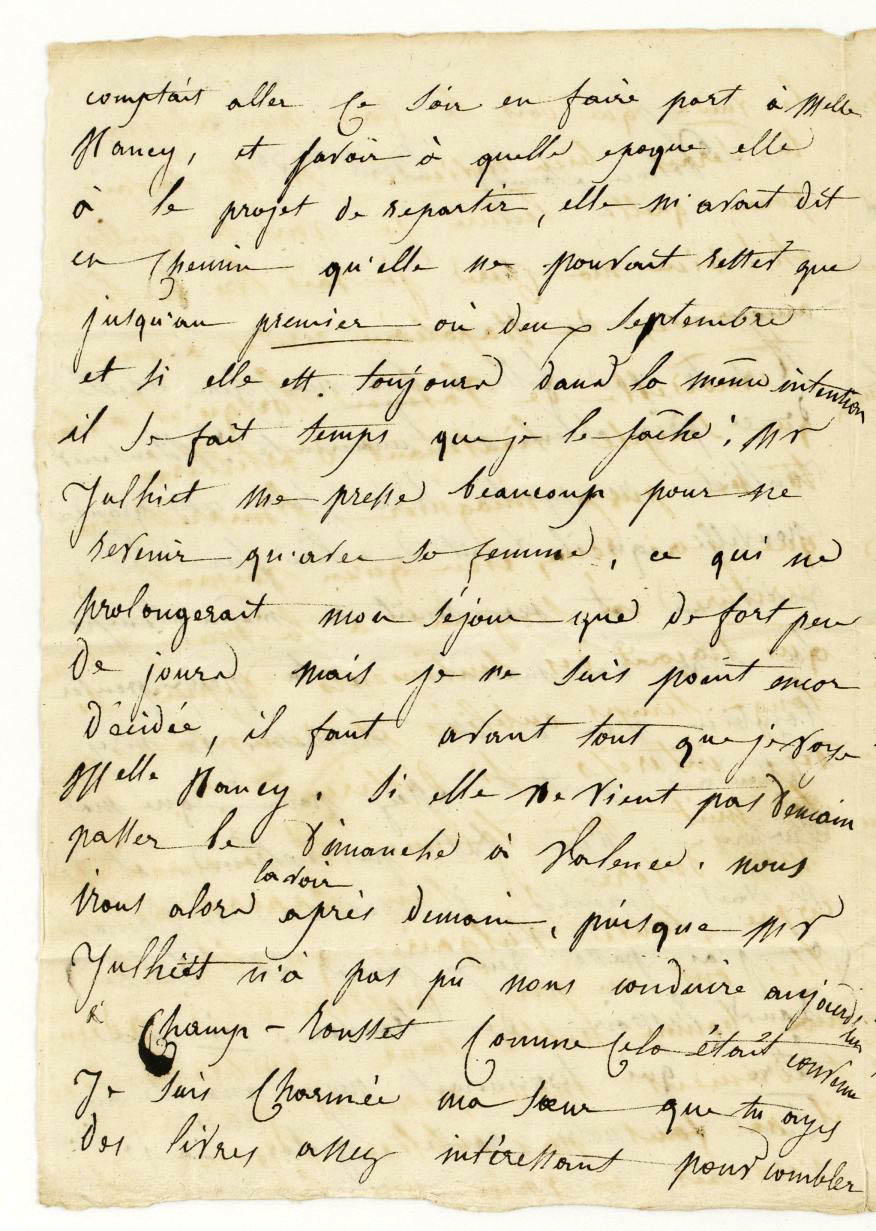 comptait aller ce soir en faire part à Melle
Nancy, et savoir à quelle epoque elle
à le projet de repartir, elle m'avait dit
en chemin qu'elle ne pouvait rester que
jusqu'au premier où deux septembre
et si elle est toujours dans la même intention
il se fait temps que je le sache; Mr
Julhiet me presse beaucoup pour ne
revenir qu'avec sa femme, ce qui ne
prolongerait mon séjour que de fort peu
de jours mais je ne suis point encor
décidée, il faut avant tout que je voye
Melle Nancy. si elle ne vient pas demain
passer le dimanche à Valence. nous
irons alors la voir après demain, puisque Mr
Julhiet n'à pas pû nous conduire aujourd'hui
à Champ-Rousset comme cela était convenu
Je suis charmée ma sœur que tu ayes
des livres assez intéressant pour combler